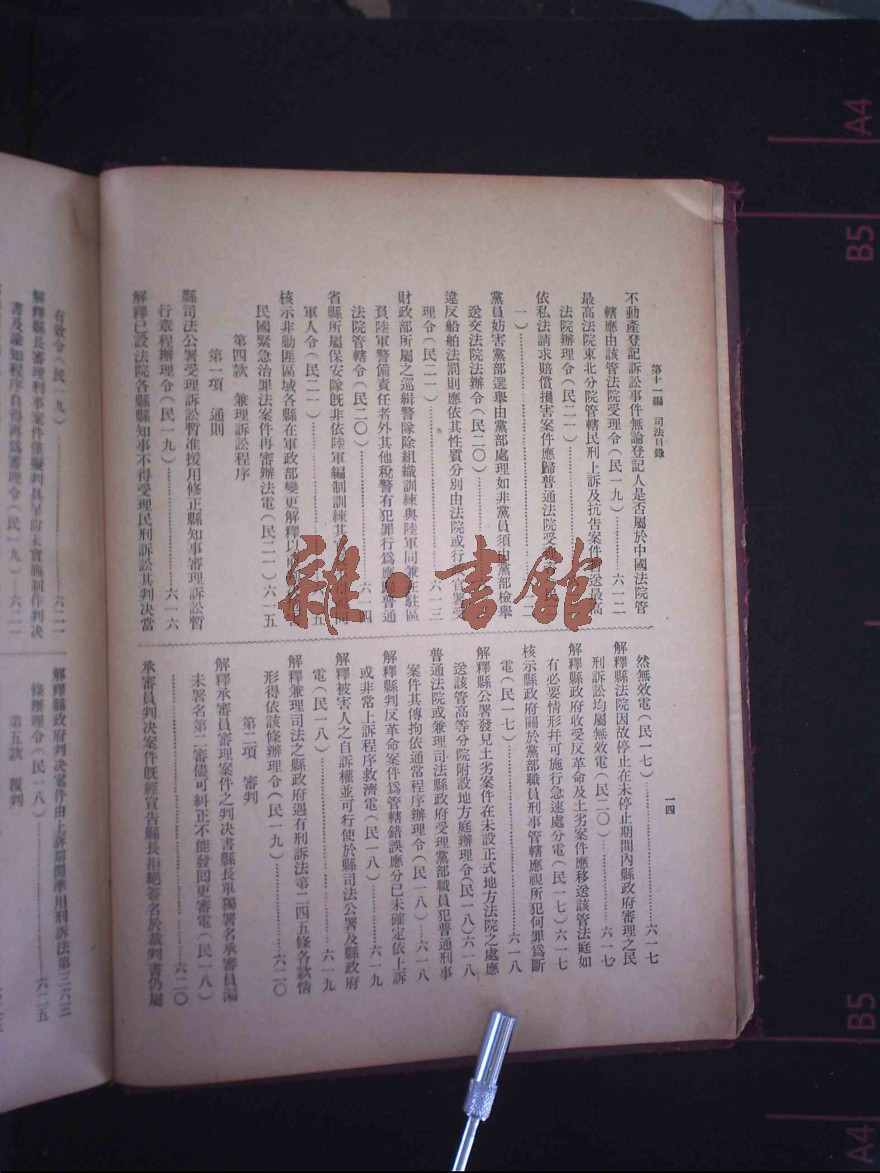 第十一編　司法目錄
一四
不動產登記訴訟事件無論登記人是否屬於中國法院管
轄應由該管法院受理令(民一九)……六一二
最高法院東北分院管轄民刑上訴及抗告案件 送最高
法院辦理令(民二一)……六一二
依私法請求賠償損害案件應歸普通法院受
一)
黨員妨害黨部選舉由黨部處理如非黨員須由黨部檢舉
送交法院法辦令(民二〇)
違反船舶法罰則應依其性質分別由法院或行 官署受
理令(民二一)……六一三
財政部所屬之巡緝警隊除組織訓練與陸軍同兼在駐區
負陸軍警備責任者外其他稅警有犯罪行為應 普通
法院管轄令(民二〇)……六一四
省縣所屬保安隊既非依陸軍編制訓練其
軍人令(民二一)……五
核示非勦匪區域各縣在軍政部變更解釋以
民國緊急治罪法案件再審辦法電(民二一)六一五
第四款　兼理訴訟程序
第一項　通則
縣司法公署受理訴訟暫准援用修正縣知事審理訴訟暫
行章程辦理令(民一九)……六一六
解釋已設法院各縣縣知事不得受理民刑訴訟其判决當
然無效電(民一七)……六一七
解釋縣法院因故停止在未停止期間內縣政府審理之民
刑訴訟均屬無效電(民二〇)……六一七
解釋縣政府收受反革命及土劣案件應移送該管法庭如
有必要情形幷可施行急速處分電(民一七)六一七
核示縣政府關於黨部職員刑事管轄應視所犯何罪爲斷
電(民一七)……六一八
解釋縣公署發見土劣案件在未設正式地方法院之處應
送該管高等分院附設地方庭辦理令(民一八)六一八
普通法院或兼理司法縣政府受理黨部職員犯普通刑事
案件其傳拘依通常程序辦理令(民一八)…六一八
解釋縣判反革命案件爲管轄錯誤應分已未確定依上訴
或非常上訴程序救濟電(民一八)……六一九
解釋被害人之自訴權並可行使於縣司法公署及縣政府
電(民一八)……六一九
解釋兼理司法之縣政府遇有刑訴法第二四五條各款情
形得依該條辦理令(民一九)……六二〇
第二項　審判
解釋承審員審理案件之判决書縣長單獨署名承審員漏
未署名第二審儘可糾正不能發囘更審電(民一八)
……六二〇
承審員判决案件既經宣告縣長拒絕簽名於裁判書仍屬
有效令(民一九)……六二一
解釋縣長審理刑事案件僅擬判具呈尚未實施制作判决
書及諭知程序自得再爲審理令(民一九)…六二一
解釋縣政府判决案件由上訴
條辦理令(民一八)……六二五
第五款　覆判
雜·書館
A4
B5
B5
A4